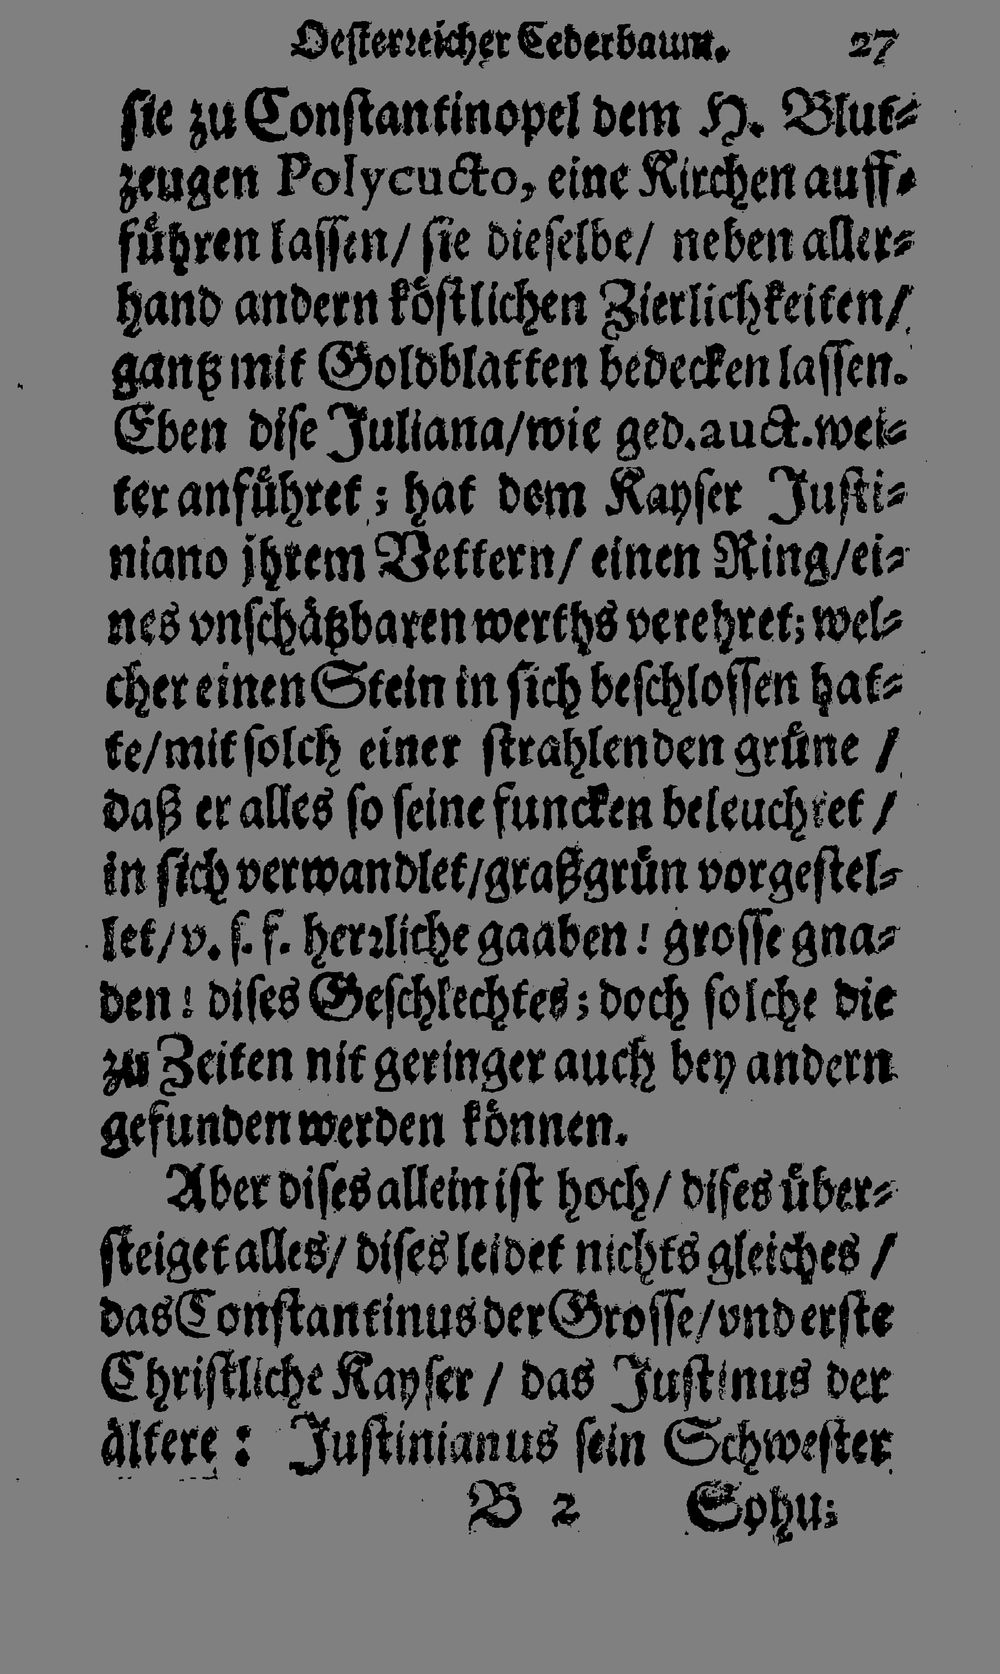 Oesterꝛeicher Cederbaum. 27
sie zu Constantinopel dem H. Blut-
zeugen Polycucto, eine Kirchen auff-
führen lassen/ sie dieselbe/ neben aller-
hand andern köstlichen Zierlichkeiten/
gantz mit Goldblatten bedecken lassen.
Eben dise Juliana/wie ged.auct.wei-
ter anführet; hat dem Kayser Justi-
niano jhrem Vettern/ einen Ring/ei-
nes vnschätzbaren werths verehret; wel-
cher einen Stein in sich beschlossen hat-
te/mit solch einer strahlenden grüne /
daß er alles so seine funcken beleuchtet /
in sich verwandlet/graßgrün vorgestel-
let/v. s. f. herꝛliche gaaben! grosse gna-
den! dises Geschlechtes; doch solche die
zu Zeiten nit geringer auch bey andern
gefunden werden können.
Aber dises allein ist hoch/ dises über-
steiget alles/ dises leidet nichts gleiches /
das Constantinus der Grosse/vnd erste
Christliche Kayser / das Justinus der
ältere: Justinianus sein Schwester
B 2 Sohn;